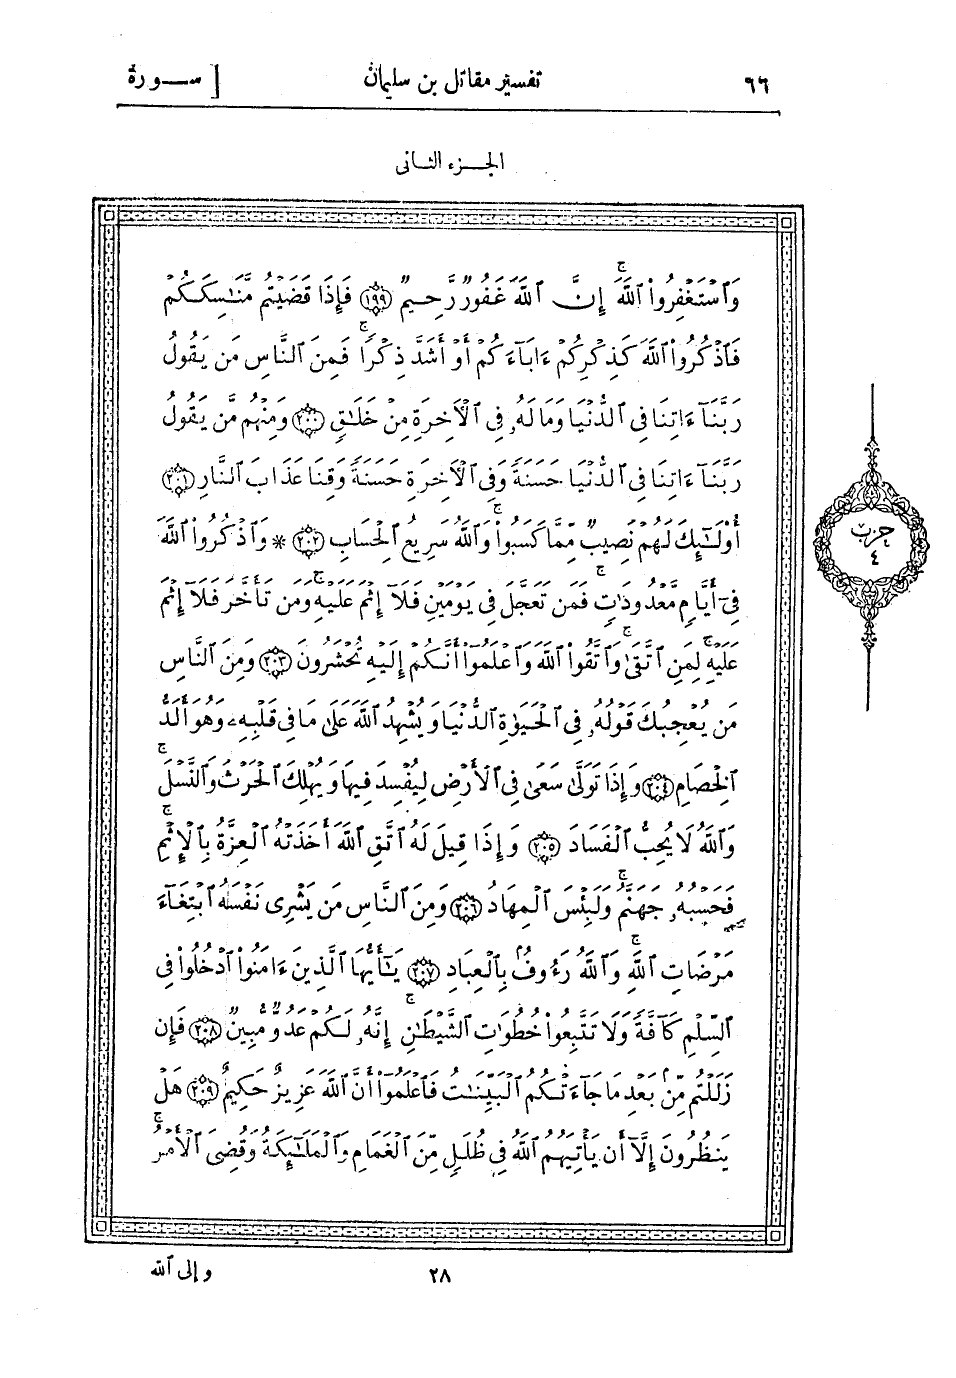 ٦٦ تفسير مقاتل بن سليمان [ ســورة
الجــزء الثانى
وَٱسْتَغْفِرُواْ ٱللَّهَۚ إِنَّ ٱللَّهَ غَفُورٌ رَّحِيمٌ ١٩٩ فَإِذَا قَضَيْتُم مَّنَـٰسِكَكُمْ
فَٱذْكُرُواْ ٱللَّهَ كَذِكْرِكُمْ ءَابَآءَكُمْ أَوْ أَشَدَّ ذِكْرًاۚ فَمِنَ ٱلنَّاسِ مَن يَقُولُ
رَبَّنَآ ءَاتِنَا فِى ٱلدُّنْيَا وَمَا لَهُۥ فِى ٱلْأَخِرَةِ مِنْ خَلَـٰقٍ ٢٠٠ وَمِنْهُم مَّن يَقُولُ
رَبَّنَآ ءَاتِنَا فِى ٱلدُّنْيَا حَسَنَةً وَفِى ٱلْأَخِرَةِ حَسَنَةً وَقِنَا عَذَابَ ٱلنَّارِ ٢٠١
أُوْلَـٰٓئِكَ لَهُمْ نَصِيبٌ مِّمَّا كَسَبُواْۚ وَٱللَّهُ سَرِيعُ ٱلْحِسَابِ ٢٠٢ * وَٱذْكُرُواْ ٱللَّهَ
فِىٓ أَيَّامٍ مَّعْدُودَٰتٍۚ فَمَن تَعَجَّلَ فِى يَوْمَيْنِ فَلَآ إِثْمَ عَلَيْهِۚ وَمَن تَأَخَّرَ فَلَآ إِثْمَ
عَلَيْهِۚ لِمَنِ ٱتَّقَىٰۗ وَٱتَّقُواْ ٱللَّهَ وَٱعْلَمُوٓاْ أَنَّكُمْ إِلَيْهِ تُحْشَرُونَ ٢٠٣ وَمِنَ ٱلنَّاسِ
مَن يُعْجِبُكَ قَوْلُهُۥ فِى ٱلْحَيَوٰةِ ٱلدُّنْيَا وَيُشْهِدُ ٱللَّهَ عَلَىٰ مَا فِى قَلْبِهِۦ وَهُوَ أَلَدُّ
ٱلْخِصَامِ ٢٠٤ وَإِذَا تَوَلَّىٰ سَعَىٰ فِى ٱلْأَرْضِ لِيُفْسِدَ فِيهَا وَيُهْلِكَ ٱلْحَرْثَ وَٱلنَّسْلَۚ
وَٱللَّهُ لَا يُحِبُّ ٱلْفَسَادَ ٢٠٥ وَإِذَا قِيلَ لَهُ ٱتَّقِ ٱللَّهَ أَخَذَتْهُ ٱلْعِزَّةُ بِٱلْإِثْمِۚ
فَحَسْبُهُۥ جَهَنَّمُۚ وَلَبِئْسَ ٱلْمِهَادُ ٢٠٦ وَمِنَ ٱلنَّاسِ مَن يَشْرِى نَفْسَهُ ٱبْتِغَآءَ
مَرْضَاتِ ٱللَّهِۚ وَٱللَّهُ رَءُوفٌۢ بِٱلْعِبَادِ ٢٠٧ يَـٰٓأَيُّهَا ٱلَّذِينَ ءَامَنُواْ ٱدْخُلُواْ فِى
ٱلسِّلْمِ كَآفَّةً وَلَا تَتَّبِعُواْ خُطُوَٰتِ ٱلشَّيْطَـٰنِۚ إِنَّهُۥ لَكُمْ عَدُوٌّ مُّبِينٌ ٢٠٨ فَإِن
زَلَلْتُم مِّنۢ بَعْدِ مَا جَآءَتْكُمُ ٱلْبَيِّنَـٰتُ فَٱعْلَمُوٓاْ أَنَّ ٱللَّهَ عَزِيزٌ حَكِيمٌ ٢٠٩ هَلْ
يَنظُرُونَ إِلَّآ أَن يَأْتِيَهُمُ ٱللَّهُ فِى ظُلَلٍ مِّنَ ٱلْغَمَامِ وَٱلْمَلَـٰٓئِكَةُ وَقُضِىَ ٱلْأَمْرُۚ
حزب
٤
٢٨
وإلى ٱلله